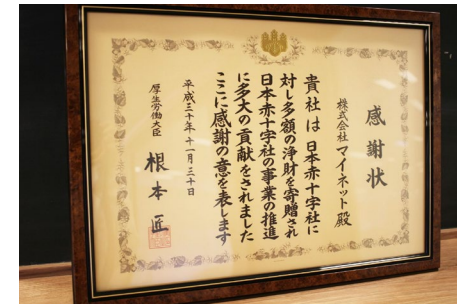 感謝状
株式会社マイネット殿
貴社は日本赤十字社に
対し多額の浄財を寄贈され
日本赤十字社の事業の推進
に多大の貢献をされました
ここに感謝の意を表します
平成三十年十一月三十日
厚生労働大臣
根本匠